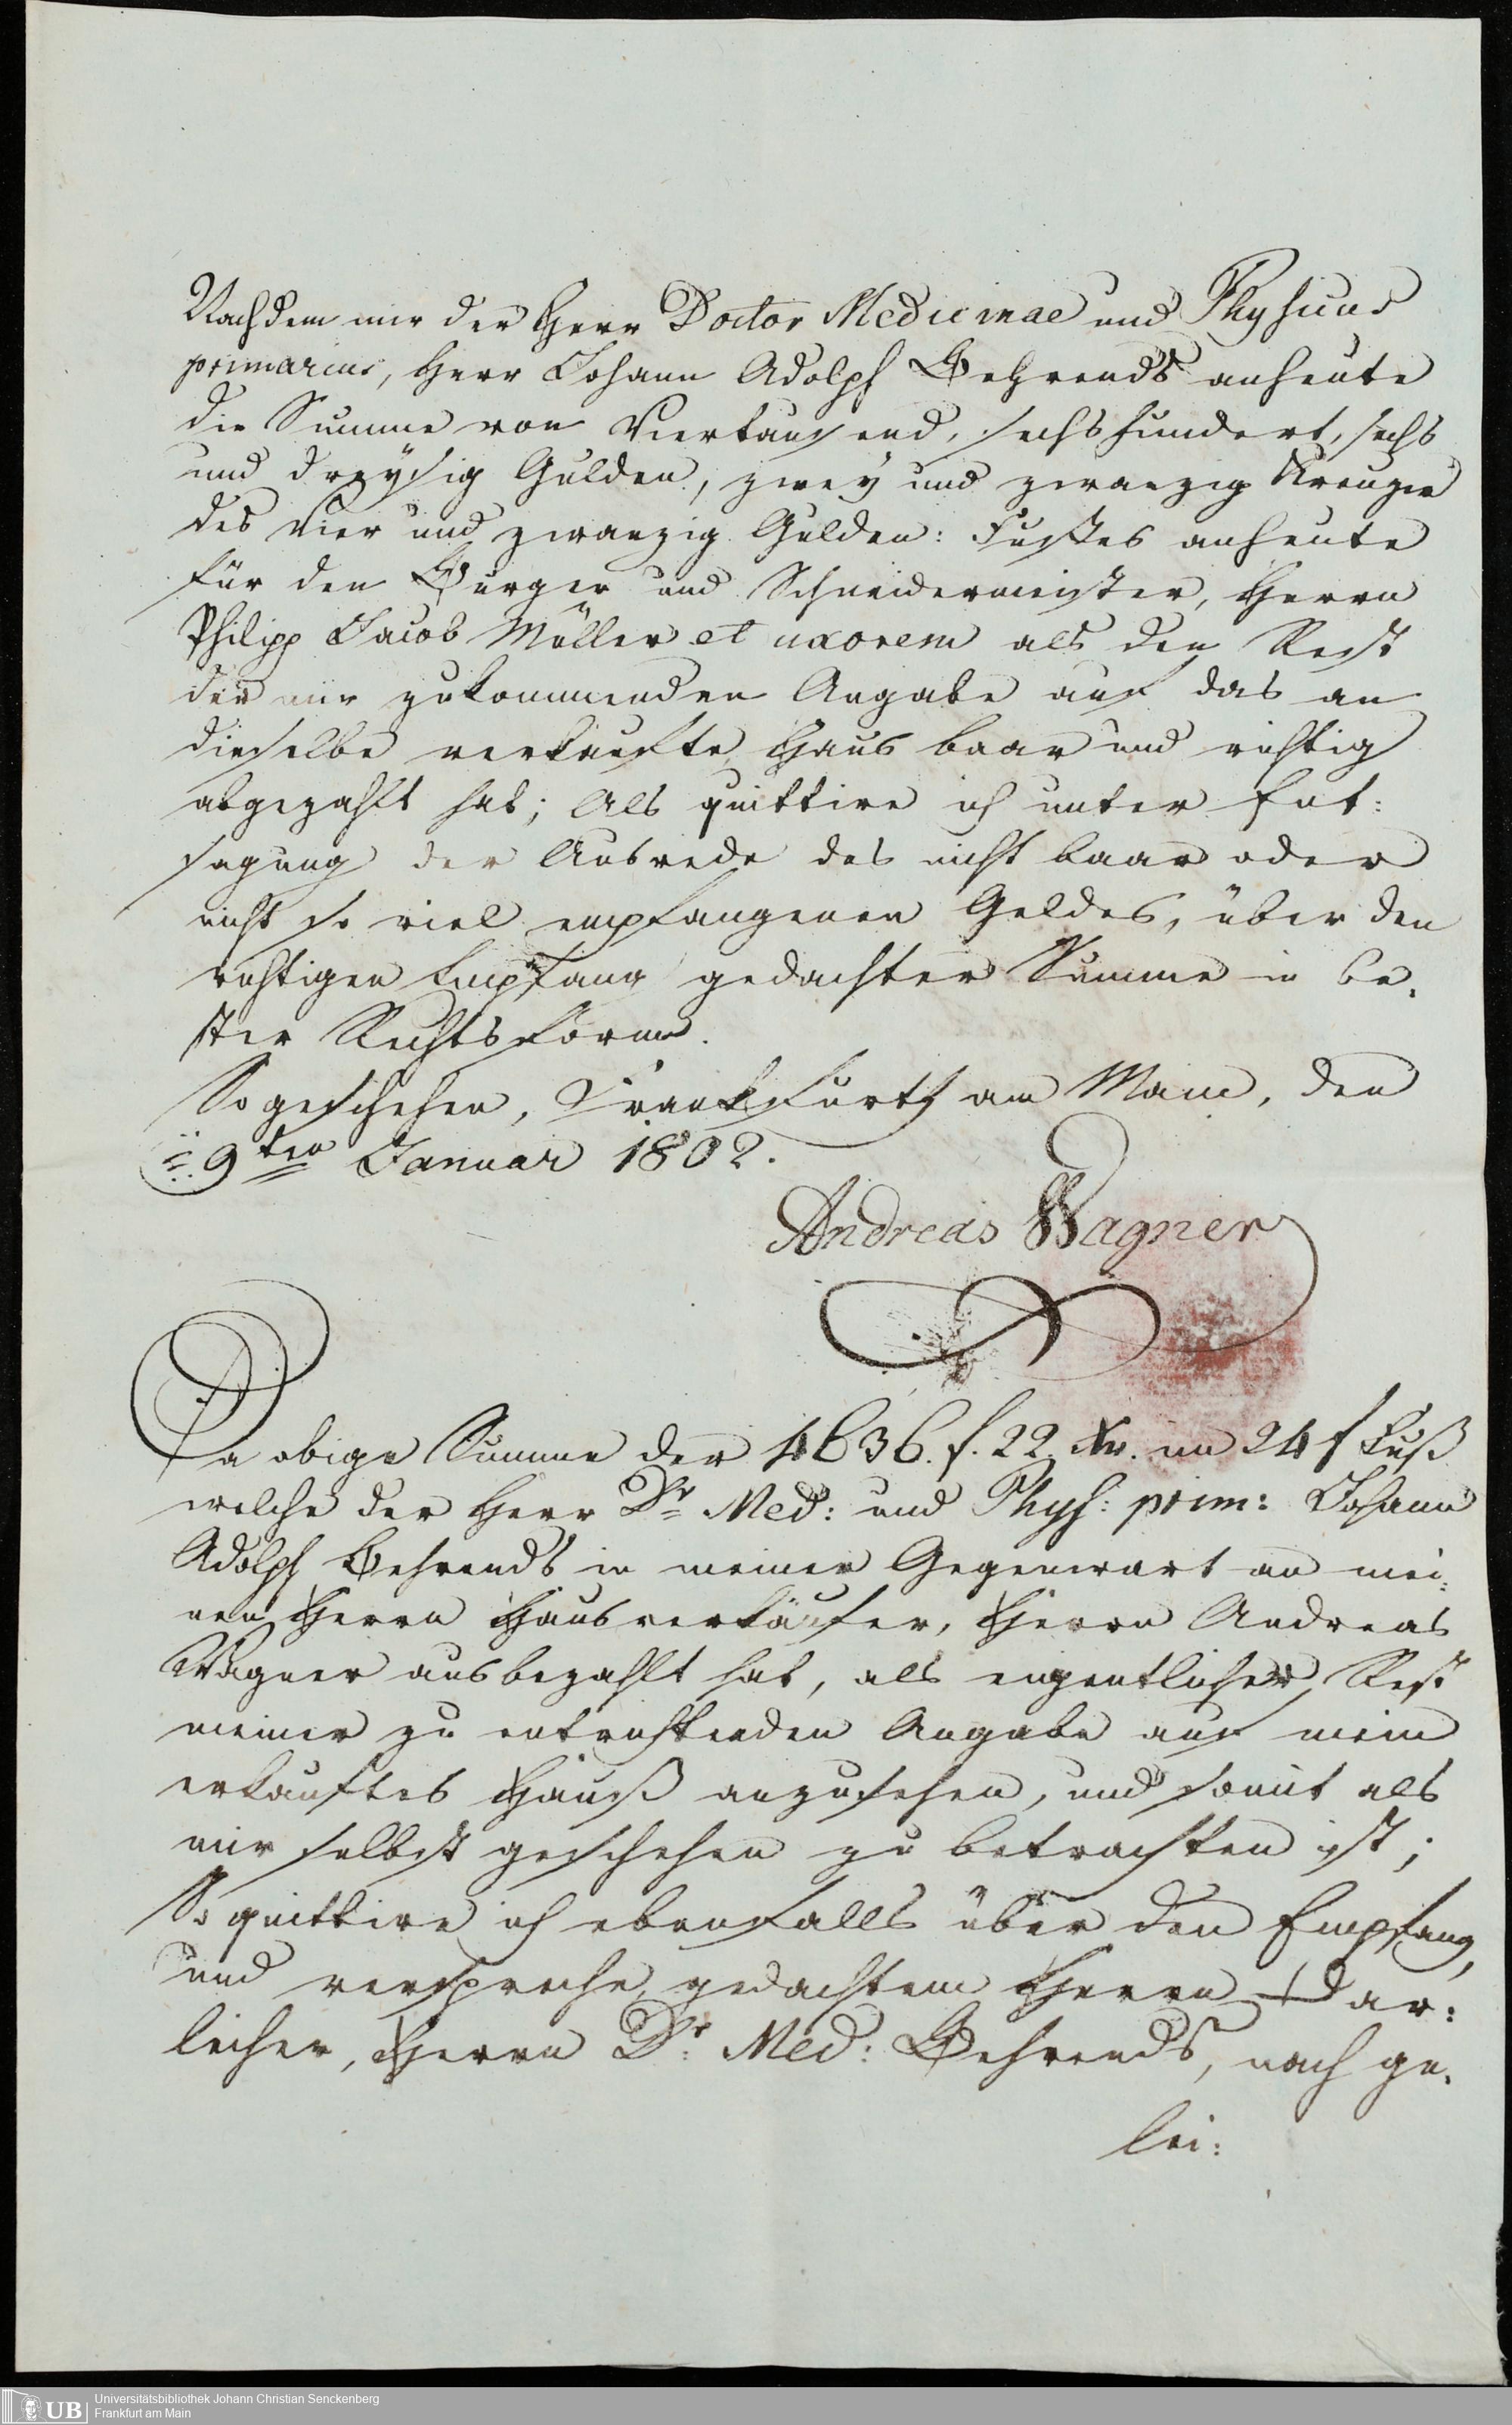 Nachdem mir der Herr Doctor Medicinae und Physicus
primarius, Herr Johann Adolph Behrends anheute
die Summe von Viertausend, sechshundert, sechs
und dreysig Gulden, zwey und zwanzig Kreuzer
des vier und zwanzig Gulden: Fußes anheute
für den Burger und Schneidermeister, Herrn
Philipp Jacob Müller et uxorem als den Rest
der mir zukommenden Angabe auf das an
dieselbe verkaufte Haus baar und richtig
abgezahlt hat; Als quittire ich unter Ent:
sagung der Ausrede des nicht baar oder
nicht so viel empfangenen Geldes, über den
richtigen Empfang gedachter Summe in be:
ster Rechtsform.
So geschehen, Frankfurth am Main, den
9ten Januar 1802.
Andreas Wagner
Da obige Summe der 4636. f. 22 Xr. im 24 f Fuß
welche der Herr Dr Med: und Phys: prim: Johann
Adolph Behrends in meiner Gegenwart an mei:
nen Herrn Hausverkäufer, Herrn Andreas
Wagner ausbezahlt hat, als eigentlicher Rest
meiner zu entrichtenden Angabe auf mein
erkauftes Hauß anzusehen, und somit als
mir selbst geschehen zu betrachten ist;
So quittire ich ebenfalls über den Empfang,
und verspreche gedachtem Herrn Dar:
leiher, Herrn Dr: Med: Behrends, nach ge:
lei:
UB
Universitätsbibliothek Johann Christian Senckenberg
Frankfurt am Main